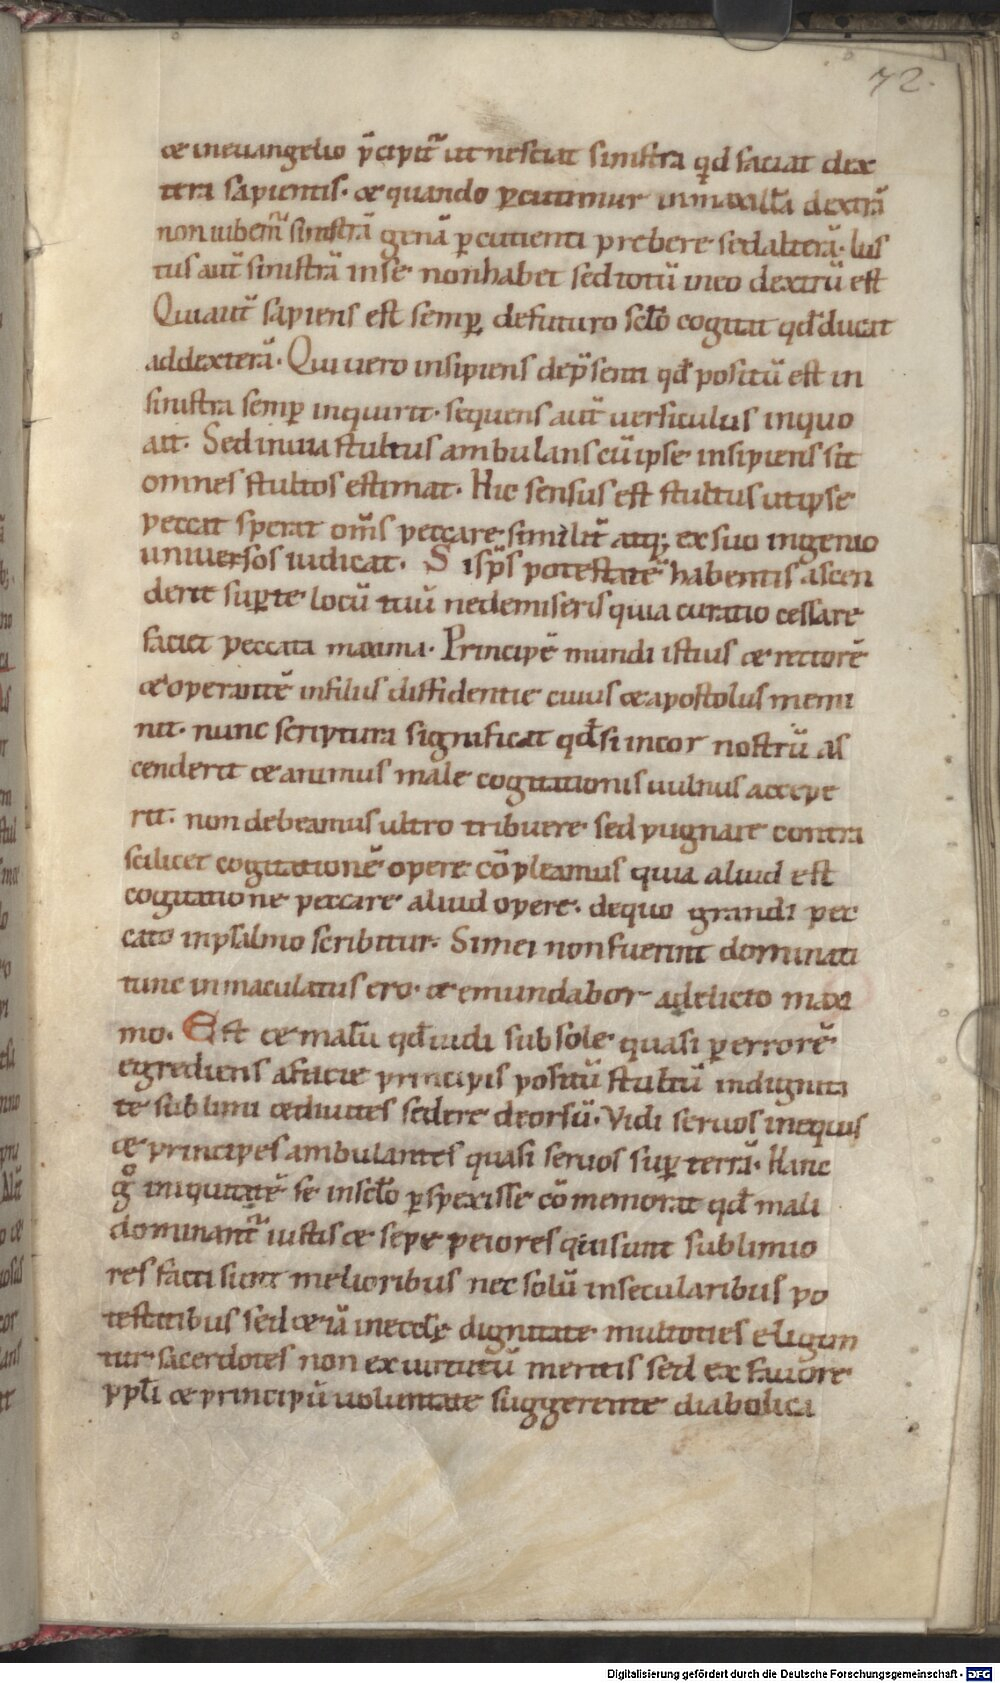 72.
& ineuangelio p̄cipit᷑ ut nesciat sinistra qd̄ faciat dex
tera sapientis. & quando ꝑcutimur inmaxillā dextrā
non iubem᷑ sinistrā genā ꝑcutienti prebere sed alterā. Ius
tus aut̄ sinistrā inse nonhabet sed totū ineo dextrū est
Qui aut̄ sapiens est semꝑ defuturo sc̄lo cogitat qd̄ ducat
addexterā. Qui uero insipiens dep̄senti qd̄ positū est in
sinistra semꝑ inquirit. sequens aut̄ uersiculus inquo
ait. Sed inuia stultus ambulans cū ipse insipiens sit
omnes stultos estimat. Hic sensus est stultus ut ipse
peccat sperat om̄s peccare similit̄ atq; ex suo ingenio
uniuersos iudicat. S isp̄s potestatē habentis ascen
derit suꝑ te locū tuū nedemiseris quia curatio cessare
faciet peccata maxima. Principē mundi istius & rectorē
& operantē infilus diffidentie cuius & apostolus memi
nit. nunc scriptura significat qd̄ si incor nostrū as
cenderit & animus male cogitationis uulnus accepe
rit. non debeamus ultro tribuere sed pugnare contra
scilicet cogitationē opere cō pleamus quia aliud est
cogitatione peccare aliud opere. dequo grandi pec
cato inpsalmo scribitur. Simei nonfuerint dominati
tunc inmaculatus ero. & emundabor adelicto maxi
mo. Est & malū qd̄ uidi subsole quasi ꝑ errorē
egrediens afacie principis positū stultū indignita
te sublimi & diuites sedere deorsū. Vidi seruos inequis
& principes ambulantes quasi seruos suꝑ terrā. Hanc
gͦ iniquitatē se insc̄lo ꝑspexisse cō memorat qd̄ mali
dominant᷑ iustis & sepe peiores qui sunt sublimio
res facti sunt melioribus nec solū insecularibus po
testatibus sed & iā inecc̄lę dignitate multoties eligun
tur sacerdotes non ex uirtutū meritis sed ex fauore
ppl̄i & principū uoluntate suggerente diabolica
Digitalisierung gefördert durch die Deutsche Forschungsgemeinschaft - DFG